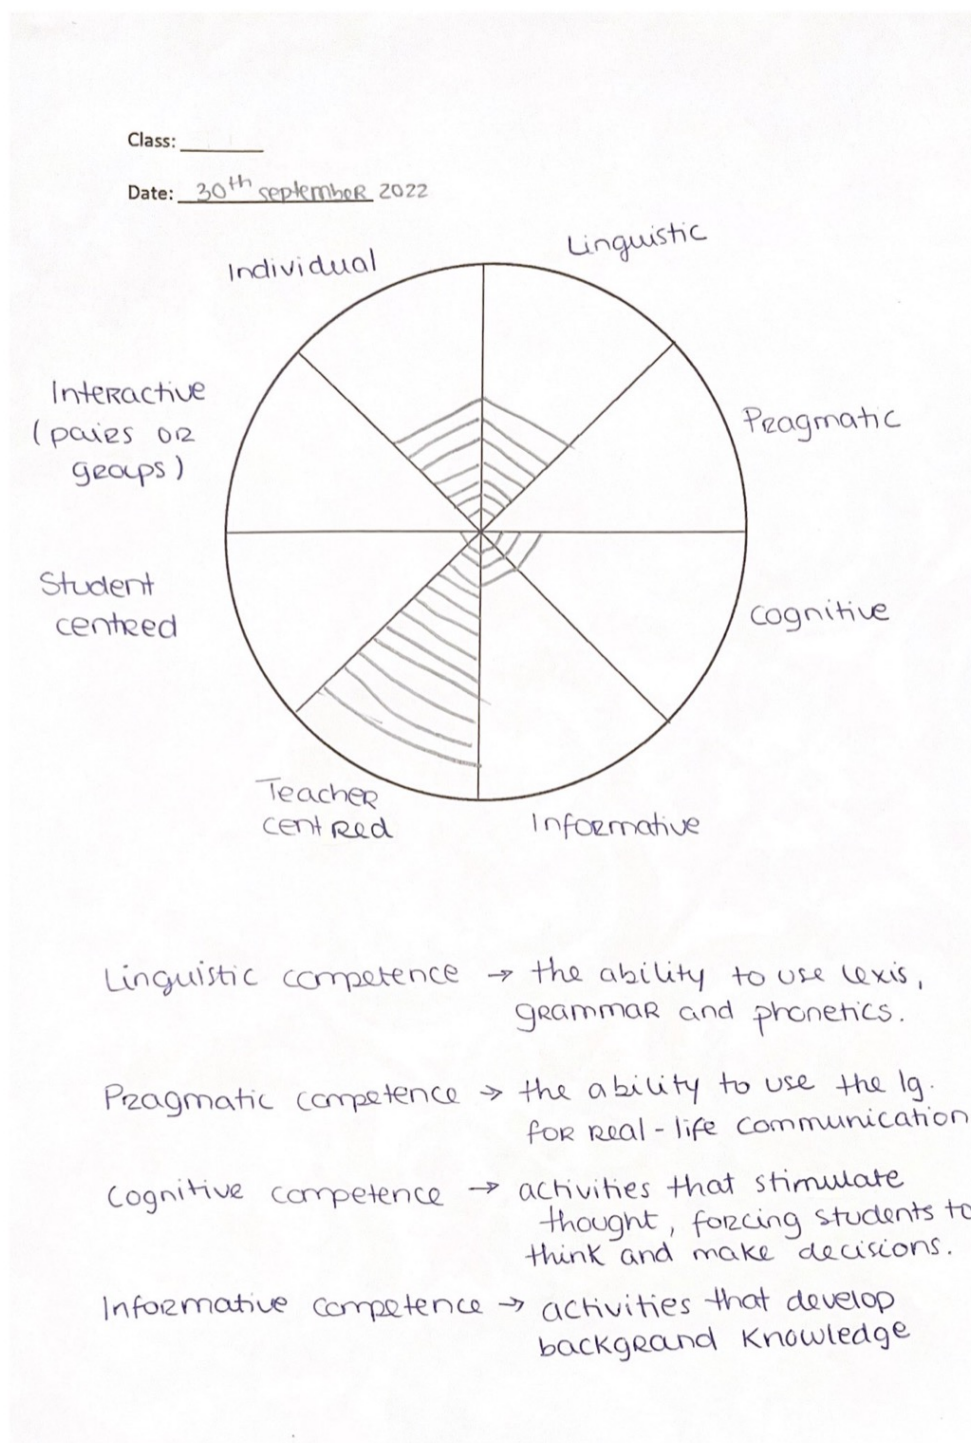 Class:
Date: 30th september 2022
Linguistic
Individual
Interactive
(pairs or
groups)
Pragmatic
Student
centred
cognitive
Teacher
centred
Informative
Linguistic competence → the ability to use lexis,
grammar and phonetics.
Pragmatic competence → the ability to use the lg.
for real-life communication
Cognitive competence → activities that stimulate
thought, forcing students to
think and make decisions.
Informative competence → activities that develop
background knowledge